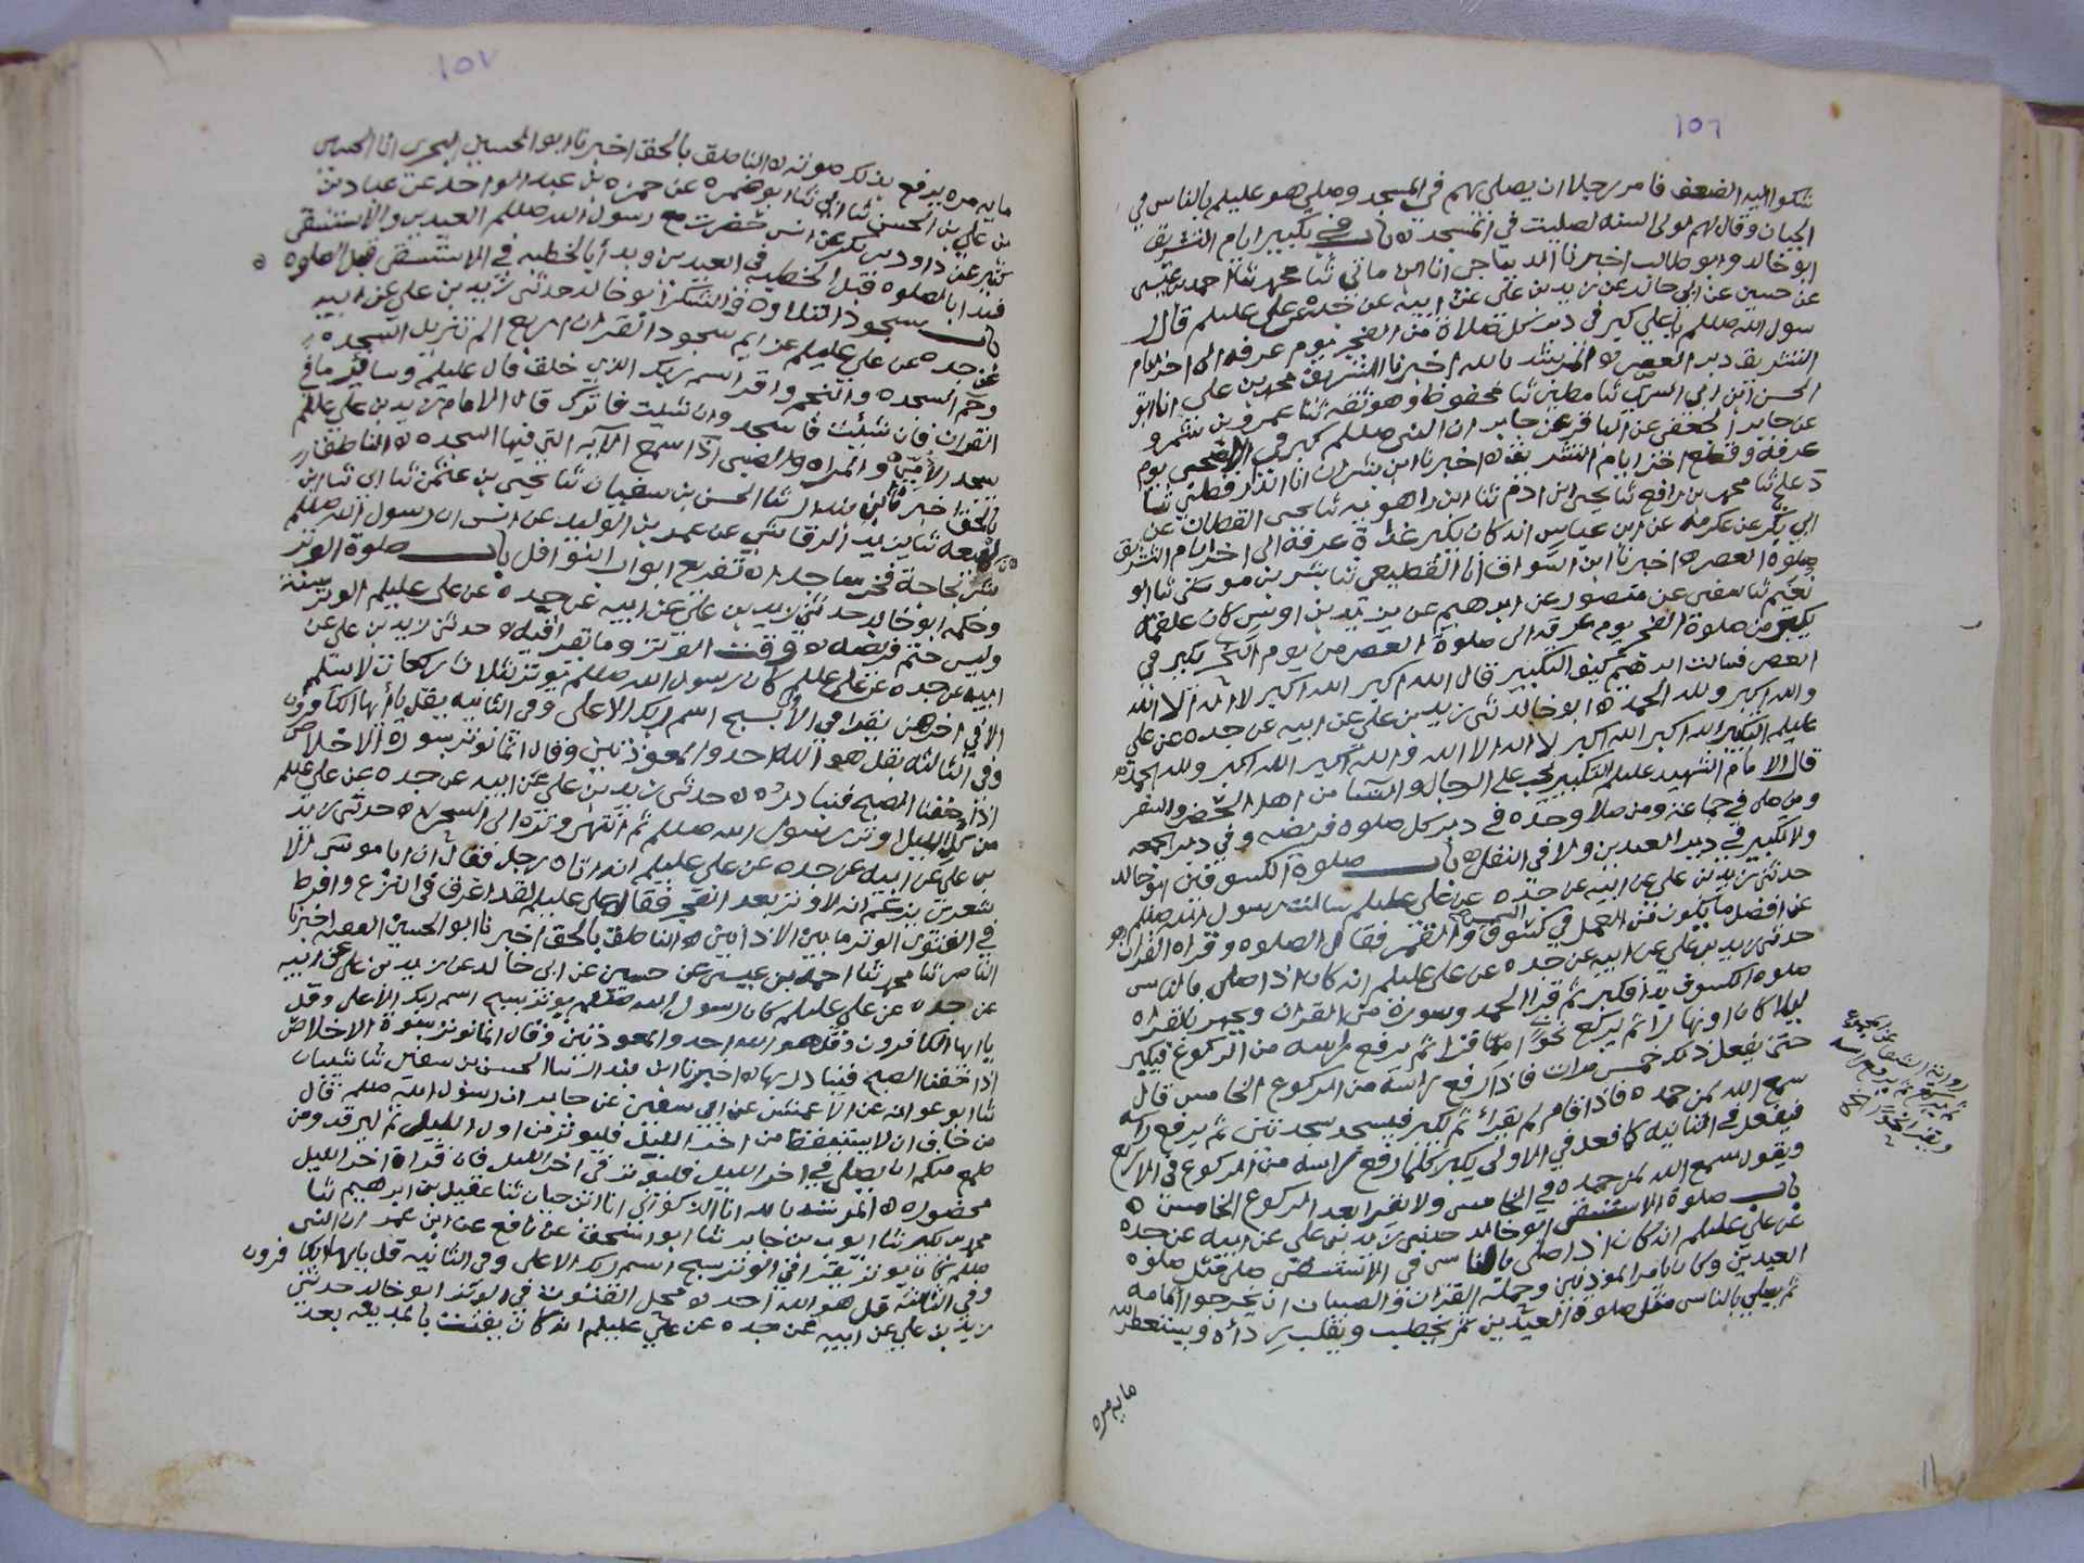 ١٥٦
شكوا اليه الضعف فامر رجلا ان يصلي بهم في المسجد وصلى هو عليلم بالناس في
الجبان وقال لهم لولى السنه لصليت في المسجد ه باب في تكبير ايام التشريق
ابو خالد وابو طالب اخبرنا الديباجي انا ابن ماتي ثنا محمد ثنا احمد بن عيسى
عن حسين عن ابي خالد عن زيد بن علي عن ابيه عن جده عن علي عليلم قال
سول الله صللم يا علي كبر في دبر كل صلاة من الفجر يوم عرفه الى اخر ايام
التشريق دبر العصر ه المرشد بالله اخبرنا الشريف محمد بن علي انا ابو
الحسن ابن ابي السري ثنا مطين ثنا محفوظ وهو ثقه ثنا عمرو بن شمر و
عن جابر الجعفي عن الباقر عن جابر ان النبي صللم كبر في الاضحى يوم
عرفة وقطع اخر ايام التشريق ه اخبرنا ابن بشران انا الدارقطني ثنا
دعلج ثنا محمد بن رافع ثنا يحيى ابن ادم ثنا ابن راهويه ثنا يحيى القطان عن
ابي بكر عن عكرمه عن ابن عباس انه كان يكبر غداة عرفة الى اخر ايام التشريق
صلوة العصر ه اخبرنا ابن السواق انا القطيعي ثنا بشر بن موسى ثنا ابو
نعيم ثنا سفين عن منصور عن ابرهيم عن يزيد بن اويس كان علقمه
يكبر من صلوة الفجر يوم عرفه الى صلوة العصر من يوم النحر يكبر في
العصر فسالت ابرهيم كيف التكبير قال الله اكبر الله اكبر لا اله الا الله
والله اكبر ولله الحمد ه ابو خالد ثني زيد بن علي عن ابيه عن جده عن علي
عليلم التكبير الله اكبر الله اكبر لا اله الا الله والله اكبر الله اكبر ولله الحمد ه
قال الامام الشهيد عليلم التكبير يجب على الرجال والنسا من اهل الحضر والسفر
ومن صلى في جماعة ومن صلا وحده في دبر كل صلوه فريضه وفي دبر الجمعه
ولا تكبير في دبر العيدين ولا في النفل ه باب صلوة الكسوفين ابو خالد
حدثني زيد بن علي عن ابيه عن جده عن علي عليلم سالت رسول الله صللم
عن افضل ما يكون من العمل في كسوف الشمس والقمر فقال الصلوه وقراه القران
حدثني زيد بن علي عن ابيه عن جده عن علي عليلم انه كان اذا صلى بالناس
صلوة الكسوف بدا فكبر ثم قرا الحمد وسورة من القران ويجهر بالقراه
ليلا كان او نهارا ثم يركع نحوا مما قرا ثم يرفع راسه من الركوع فيكبر
حتى يفعل ذلك خمس مرات فاذا رفع راسه من الركوع الخامس قال
سمع الله لمن حمده فاذا قام لم يقرأ ثم يكبر فيسجد سجدتين ثم يرفع راسه
فيفعل في الثانيه كما فعل في الاولى يكبر كلما رفع راسه من الركوع في الاربع
ويقول سمع الله لمن حمده في الخامس ولا يقرا بعد الركوع الخامس ه
باب صلوة الاستسقى ابو خالد حدثني زيد بن علي عن ابيه عن جده
عن علي عليلم انه كان اذا صلى بالناس في الاستسقى صلى مثل صلوه
العيدين وكان يامر المؤذنين وحملة القران والصبيان ان يخرجوا امامه
ثم يصلي بالناس مثل صلوة العيدين ثم يخطب ويقلب رداه ويستغفر الله
مايه مره
ثم يركع ثم يرفع راسه
١٥٧
مايه مره يرفع بذلك صوته ه الناطق بالحق اخبرنا ابو الحسين البحري انا الحسين
بن علي بن الحسن ثنا ابي ثنا ابو ضمره عن حمزه بن عبد الواحد عن عباد بن
كثير عن داود بن بكر عن انس حضرت مع رسول الله صللم العيدين والاستسقى
فبدا بالصلوه قبل الخطبه في العيدين وبدأ بالخطبه في الاستسقى قبل الصلوه ه
باب سجود التلاوه والشكر ابو خالد حدثني زيد بن علي عن ابيه
عن جده عن علي عليلم عزايم سجود القران اربع الم تنزيل السجده
وحم السجده والنجم واقرا باسم ربك الذي خلق قال عليلم وساير ما في
القران فان شئت فاسجد وان شئت فاترك قال الامام زيد بن علي عليلم
يسجد الامي والمراه والصبى اذا سمع الآيه التي فيها السجده ه الناطق
بالحق اخبرنا ابن بندار ثنا الحسن بن سفيان ثنا يحيى بن عثمن ثنا ابي ثنا ابن
لهيعه ثنا يزيد الرقاشي عن عمر بن الوليد عن انس ان رسول الله صللم
بشر بحاجة فخر ساجدا ه تفريع ابواب النوافل باب صلوة الوتر
وحكمه ابو خالد حدثني زيد بن علي عن ابيه عن جده عن علي عليلم الوتر سنة
وليس حتم فريضه ه وقت الوتر وما يقرا فيه ه حدثني زيد بن علي عن
ابيه عن جده عن علي عليلم كان رسول الله صللم يوتر بثلاث ركعات لا يسلم
الا في اخرهن يقرا في الاولى سبح اسم ربك الاعلى وفي الثانيه بقل يا أيها الكافرون
وفي الثالثه بقل هو الله احد والمعوذتين وقال انما نوتر بسورة الاخلاص
اذا خفنا الصبح فنبادره ه حدثني زيد بن علي عن ابيه عن جده عن علي عليلم
من كل الليل اوتر رسول الله صللم ثم انتهى وتره الى السحر ه حدثني زيد
بن علي عن ابيه عن جده عن علي عليلم انه اتاه رجل فقال ان ابا موسى الا
شعري يزعم انه لا وتر بعد الفجر فقال علي عليلم لقد اغرق في النزع وافرط
في الفتوى الوتر ما بين الاذانين ه الناطق بالحق اخبرنا ابو الحسين العصار اخبرنا
الناصر ثنا محمد ثنا احمد بن عيسى عن حسين عن ابي خالد عن زيد بن علي عن ابيه
عن جده عن علي عليلم كان رسول الله صللم يوتر بسبح اسم ربك الاعلى وقل
يا ايها الكافرون وقل هو الله احد والمعوذتين وقال انما نوتر بسورة الاخلاص
اذا خفنا الصبح فنبادر بها ه اخبرنا ابن بندار ثنا الحسن بن سفين ثنا شيبان
ثنا ابو عوانه عن الاعمش عن ابي سفين عن جابر ان رسول الله صللم قال
من خاف ان لا يستيقظ من اخر الليل فليوتر من اول الليل ثم ليرقد ومن
طمع منكم ان يصلي في اخر الليل فليوتر في اخر الليل فان قراة اخر الليل
محضوره ه المرشد بالله انا الذكواني انا ابن حيان ثنا عقيل بن ابرهيم ثنا
محمد بن بكير ثنا ايوب بن جابر ثنا ابو اسحق عن نافع عن ابن عمر ان النبي
صللم كان يوتر يقرا في الوتر سبح اسم ربك الاعلى وفي الثانيه قل يا ايها الكافرون
وفي الثالثه قل هو الله احد ه محل القنوت في الوتر ابو خالد حدثني
زيد بن علي عن ابيه عن جده عن علي عليلم انه كان يقنت بالمدينه بعد